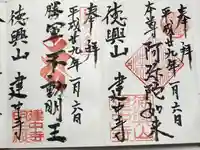 奉拝
平成廿九年一月六日
本尊 阿弥陀如来
徳興山 建中寺
奉拝
平成廿九年一月六日
勝軍 不動明王
徳興山 建中寺